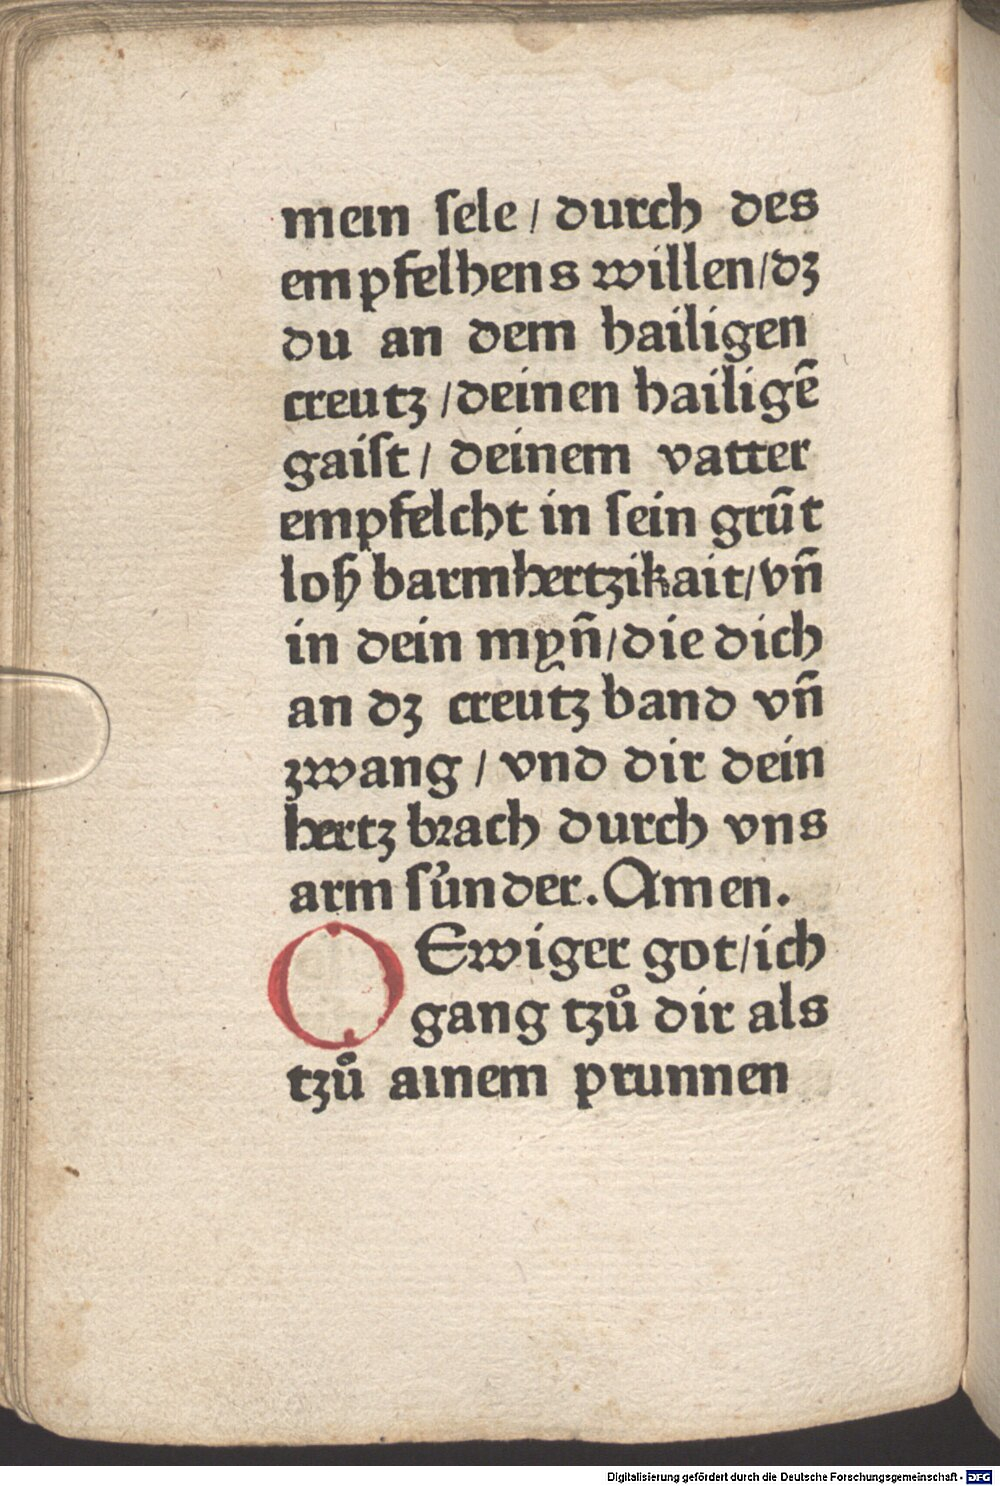 mein ſele / durch des
empfelhens willen/dʒ
du an dem hailigen
creutʒ / deinen hailigē
gaiſt / deinem vatter
empfelcht in ſein grūt
loß barmhertʒikait/vñ
in dein myñ/die dich
an dʒ creutʒ band vñ
ʒwang / vnd dir dein
hertʒ bꝛach durch vns
arm ſu̍nder. Amen.
O Ewiger got/ich
gang tʒů dir als
tʒů ainem prunnen
Digitalisierung gefördert durch die Deutsche Forschungsgemeinschaft - DFG